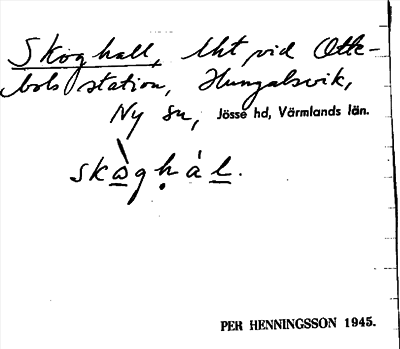 Skoghall, lht vid Otte-
bols station, Hungalsvik,
Ny sn, Jösse hd, Värmlands län.
skògḥál.
PER HENNINGSSON 1945.